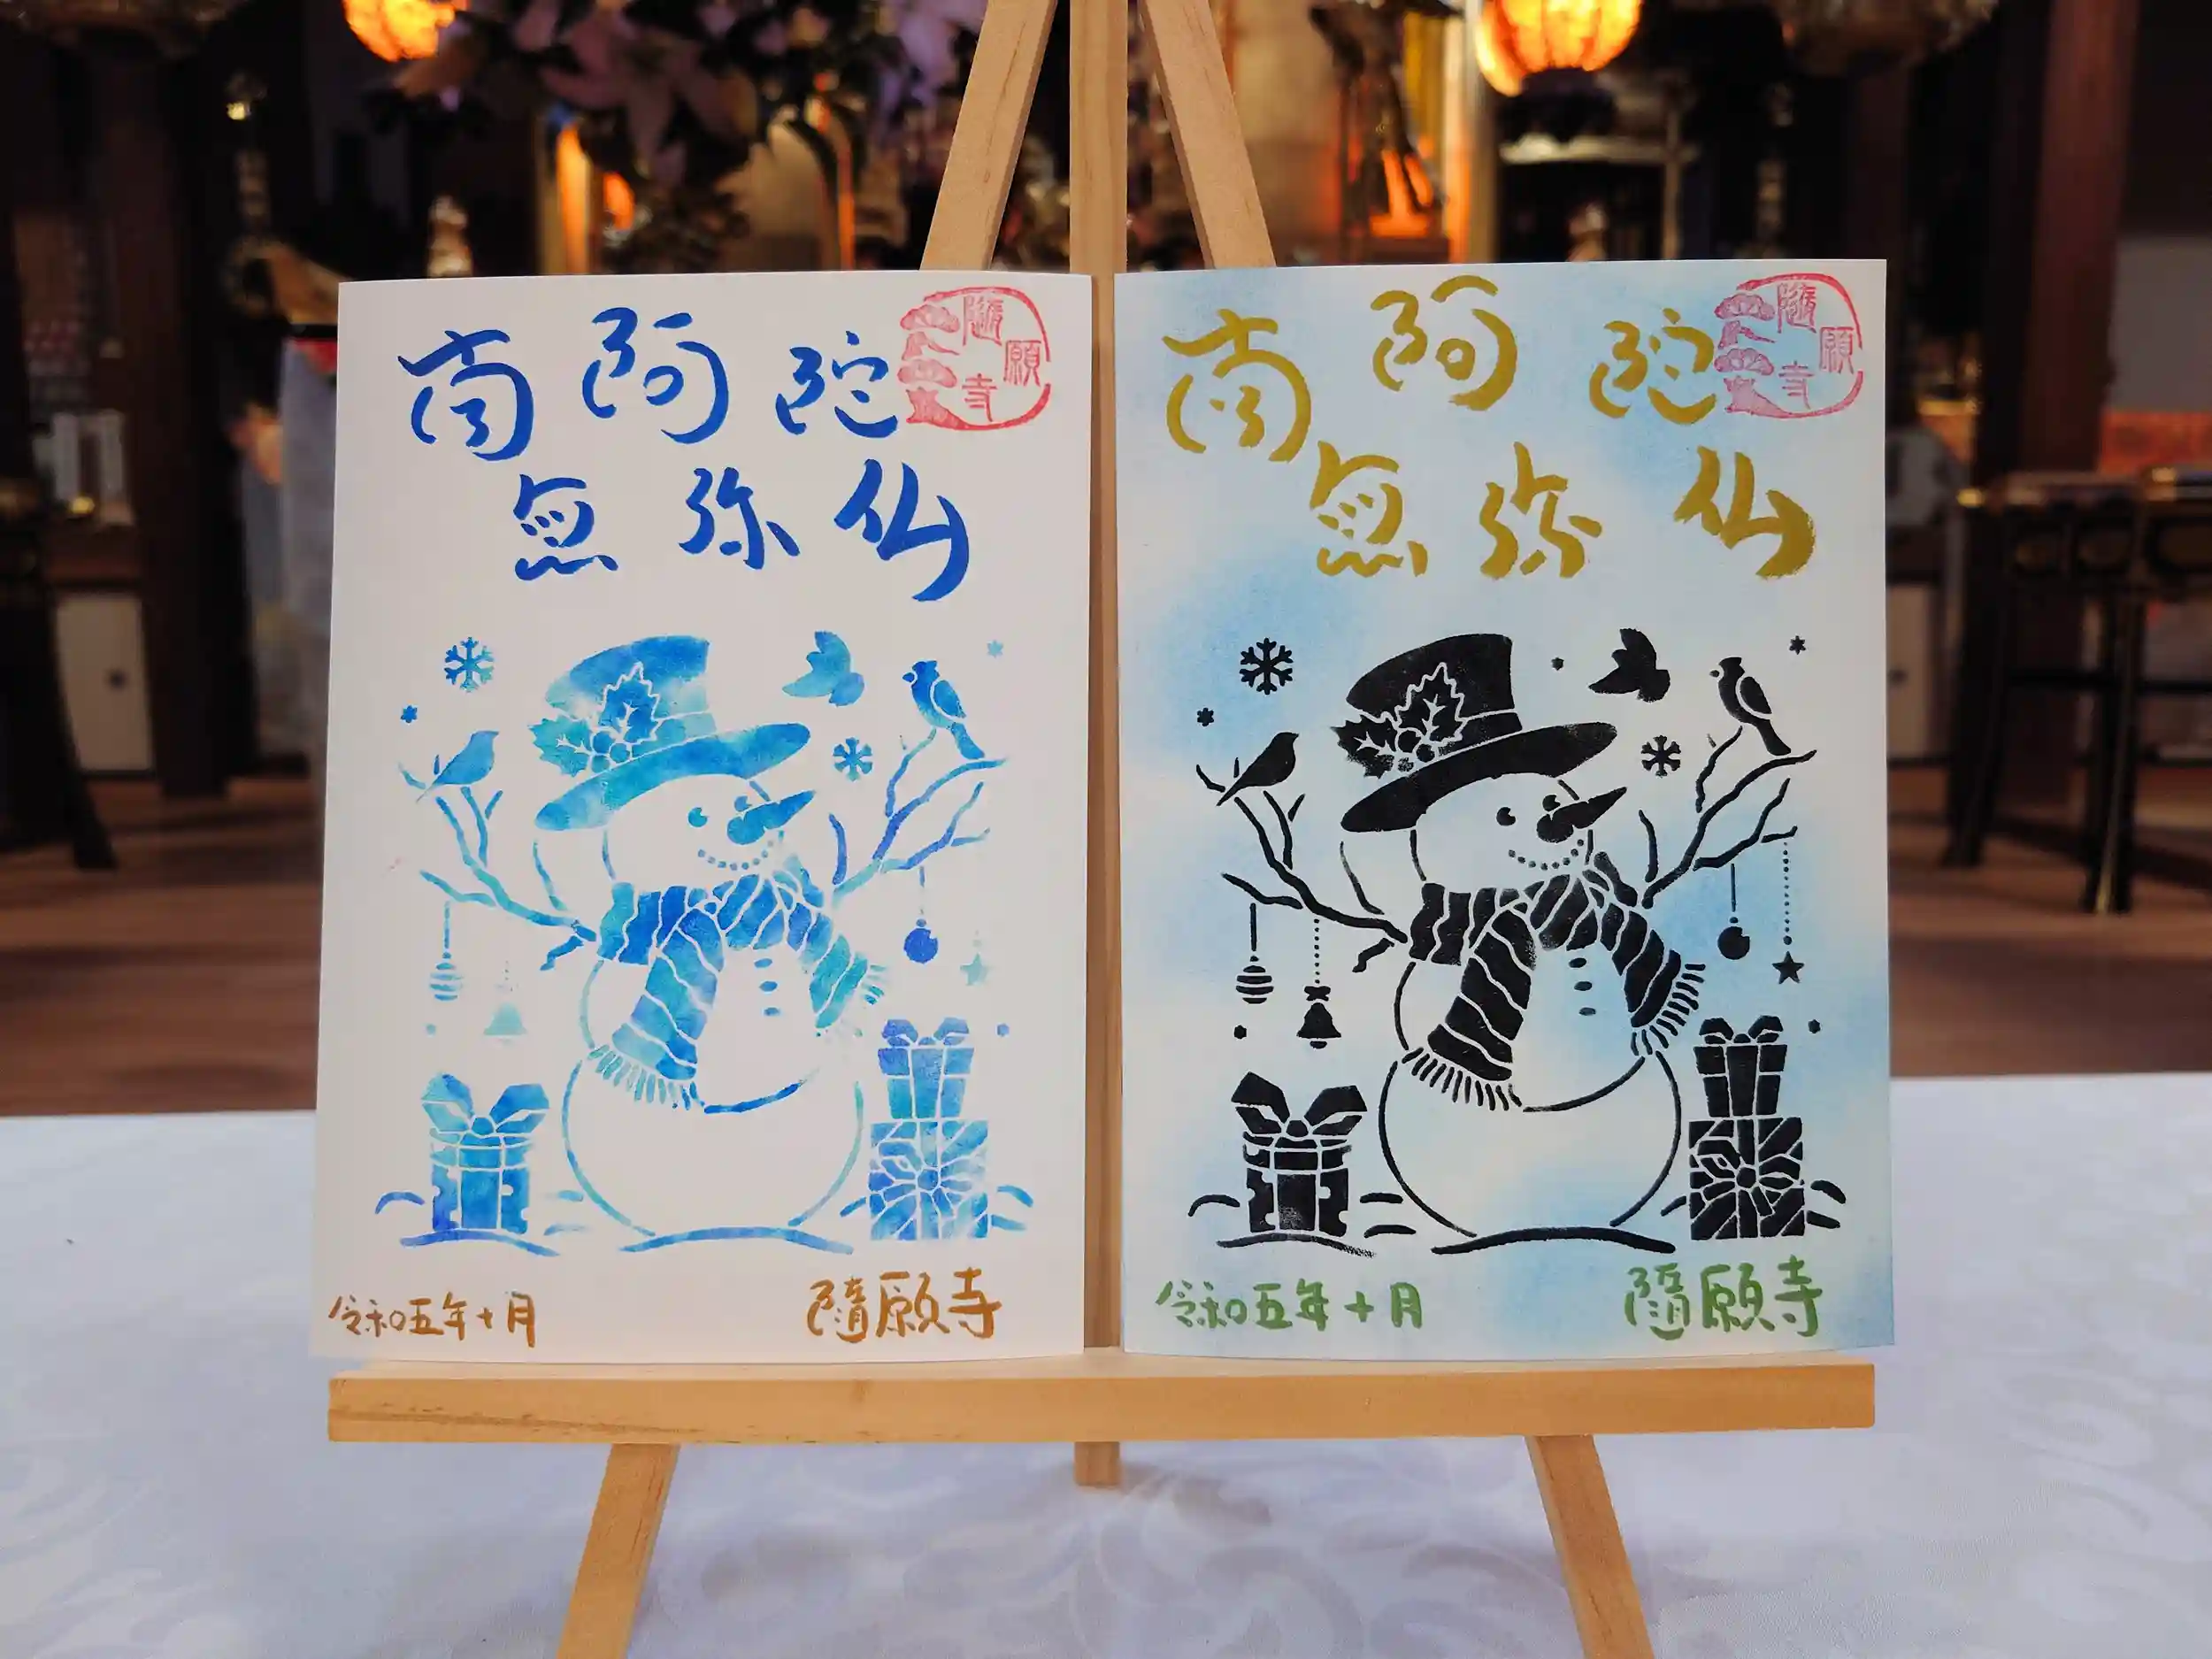 南無阿弥陀仏
隨願寺
令和五年十月
隨願寺
南無阿弥陀仏
隨願寺
令和五年十月
隨願寺